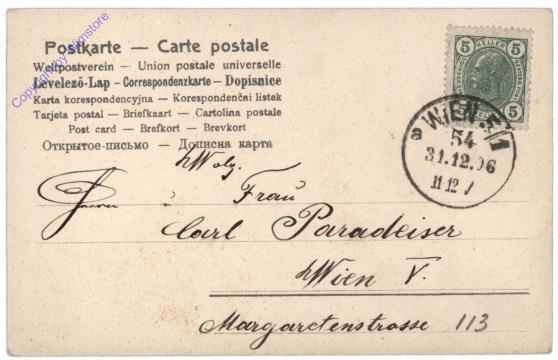 Postkarte — Carte postale
Weltpostverein — Union postale universelle
Levelező-Lap – Correspondenzkarte – Dopisnice
Karta korespondencyjna — Korespondenční listek
Tarjeta postal — Briefkaart — Cartolina postale
Post card — Brefkort — Brevkort
Открытое-письмо — Дописна карта
5 HELLER 5
5 5
WIEN 5/1
54
31.12.06
11-12
Wolg.
Herrn u Frau
Carl Paradeiser
Wien V.
Margaretenstrasse 113